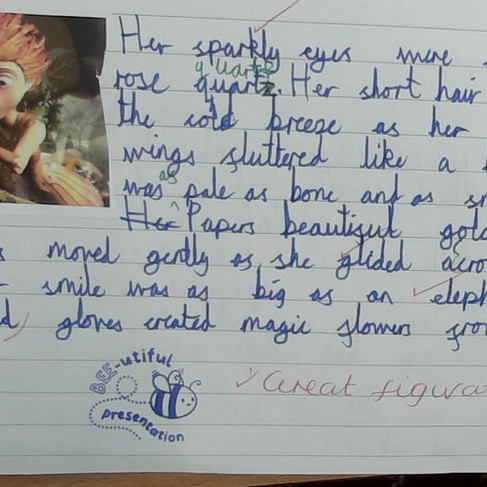 Her sparkly eyes were
quartz
rose quartz. Her short hair
the cold breeze as her
wings fluttered like a
as
was pale as bone and as
Her Papers beautiful
moved gently as she glided
smile was as big as an
gloves created magic flowers
BEE-utiful
presentation
✓ Great